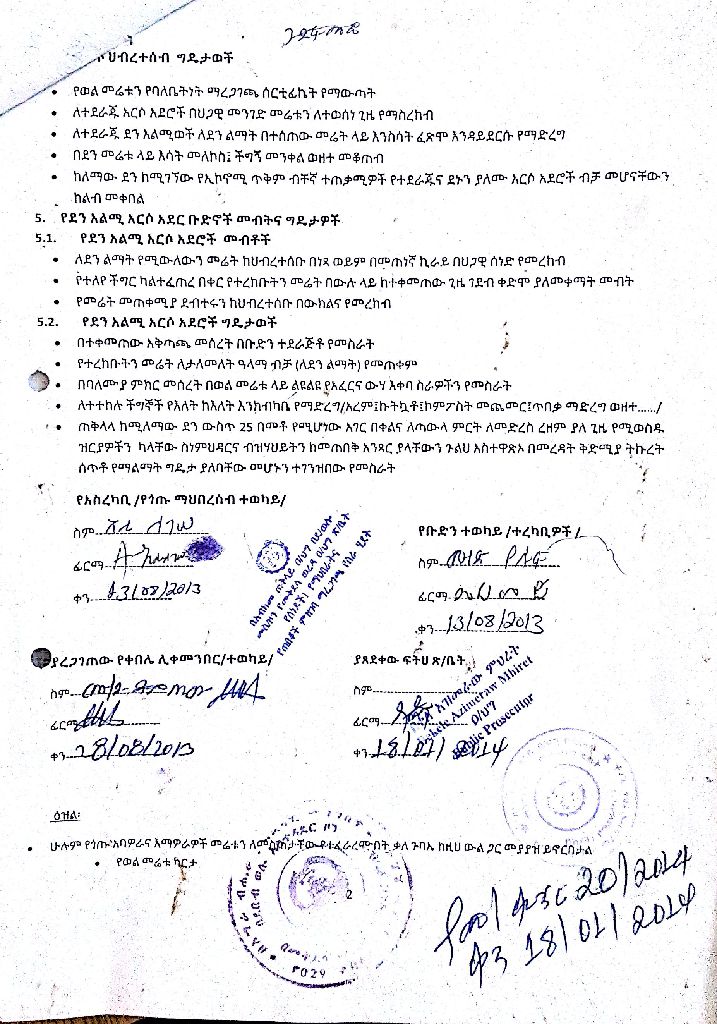 ህብረተሰብ ግዴታወች
• የወል መሬቱን የባለቤትነት ማረጋገጫ ሰርቲፊኬት የማውጣት
• ለተደራጁ አርሶ አደሮች በህጋዊ መንገድ መሬቱን ለተወሰነ ጊዜ የማስረከብ
• ለተደራጁ ደን አልሚወች ለደን ልማት በተሰጠው መሬት ላይ እንስሳት ፈጽሞ እንዳይደርሱ የማድረግ
• በደን መሬቱ ላይ እሳት መለኮስ፤ ችግኝ መንቀል ወዘተ መቆጠብ
• ከለማው ደን ከሚገኘው የኢኮኖሚ ጥቅም ብቸኛ ተጠቃሚዎች የተደራጁና ደኑን ያለሙ አርሶ አደሮች ብቻ መሆናቸውን
ከልብ መቀበል
5. የደን አልሚ አርሶ አደር ቡድኖች መብትና ግዴታዎች
5.1. የደን አልሚ አርሶ አደሮች መብቶች
• ለደን ልማት የሚውለውን መሬት ከህብረተሰቡ በነጻ ወይም በመጠነኛ ኪራይ በህጋዊ ሰነድ የመረከብ
• የተለየ ችግር ካልተፈጠረ በቀር የተረከቡትን መሬት በውሉ ላይ ከተቀመጠው ጊዜ ገደብ ቀድሞ ያለመቀማት መብት
• የመሬት መጠቀሚያ ደብተሩን ከህብረተሰቡ በውክልና የመረከብ
5.2. የደን አልሚ አርሶ አደሮች ግዴታወች
• በተቀመጠው አቅጣጫ መሰረት በቡድን ተደራጅቶ የመስራት
• የተረከቡትን መሬት ለታለመለት ዓላማ ብቻ (ለደን ልማት) የመጠቀም
• በባለሙያ ምክር መሰረት በወል መሬቱ ላይ ልዩልዩ የአፈርና ውሃ እቀባ ስራዎችን የመስራት
• ለተተከሉ ችግኞች የእለት ከእለት እንክብካቤ የማድረግ/አረም፤ኩትኳቶ፤ኮምፖስት መጨመር፤ጥበቃ ማድረግ ወዘተ....../
• ጠቅላላ ከሚለማው ደን ውስጥ 25 በመቶ የሚሆነው አገር በቀልና ለጣውላ ምርት ለመድረስ ረዘም ያለ ጊዜ የሚወስዱ
ዝርያዎችን ካላቸው ስነምህዳርና ብዝሃህይትን ከመጠበቅ አንጻር ያላቸውን ጉልህ አስተዋጽኦ በመረዳት ቅድሚያ ትኩረት
ሰጥቶ የማልማት ግዴታ ያለባቸው መሆኑን ተገንዝበው የመስራት
የአስረካቢ /የጎጡ ማህበረሰብ ተወካይ/
ስም
ፊርማ
ቀን 13/08/2013
የቡድን ተወካይ /ተረካቢዎች /
ስም
ፊርማ
ቀን 13/08/2013
ያረጋገጠው የቀበሌ ሊቀመንበር/ተወካይ/
ስም
ፊርማ
ቀን 28/08/2013
ያጸደቀው ፍትህ ጽ/ቤት
ስም
ፊርማ
ቀን 18/01/2014
አዝመራው ምህረት
Azimeraw Mhiret
ዐ/ህግ
Public Prosecutor
ዕዝል፡
• ሁሉም የጎጡ አባዎራና እማዎራዎች መሬቱን ለመስጠታቸው የተፈራረሙበት ቃለ ጉባኤ ከዚህ ውል ጋር መያያዝ ይኖርበታል
• የወል መሬቱ ካርታ
2
የመ/ቁጥር 20/2014
ቀን 18/01/2014